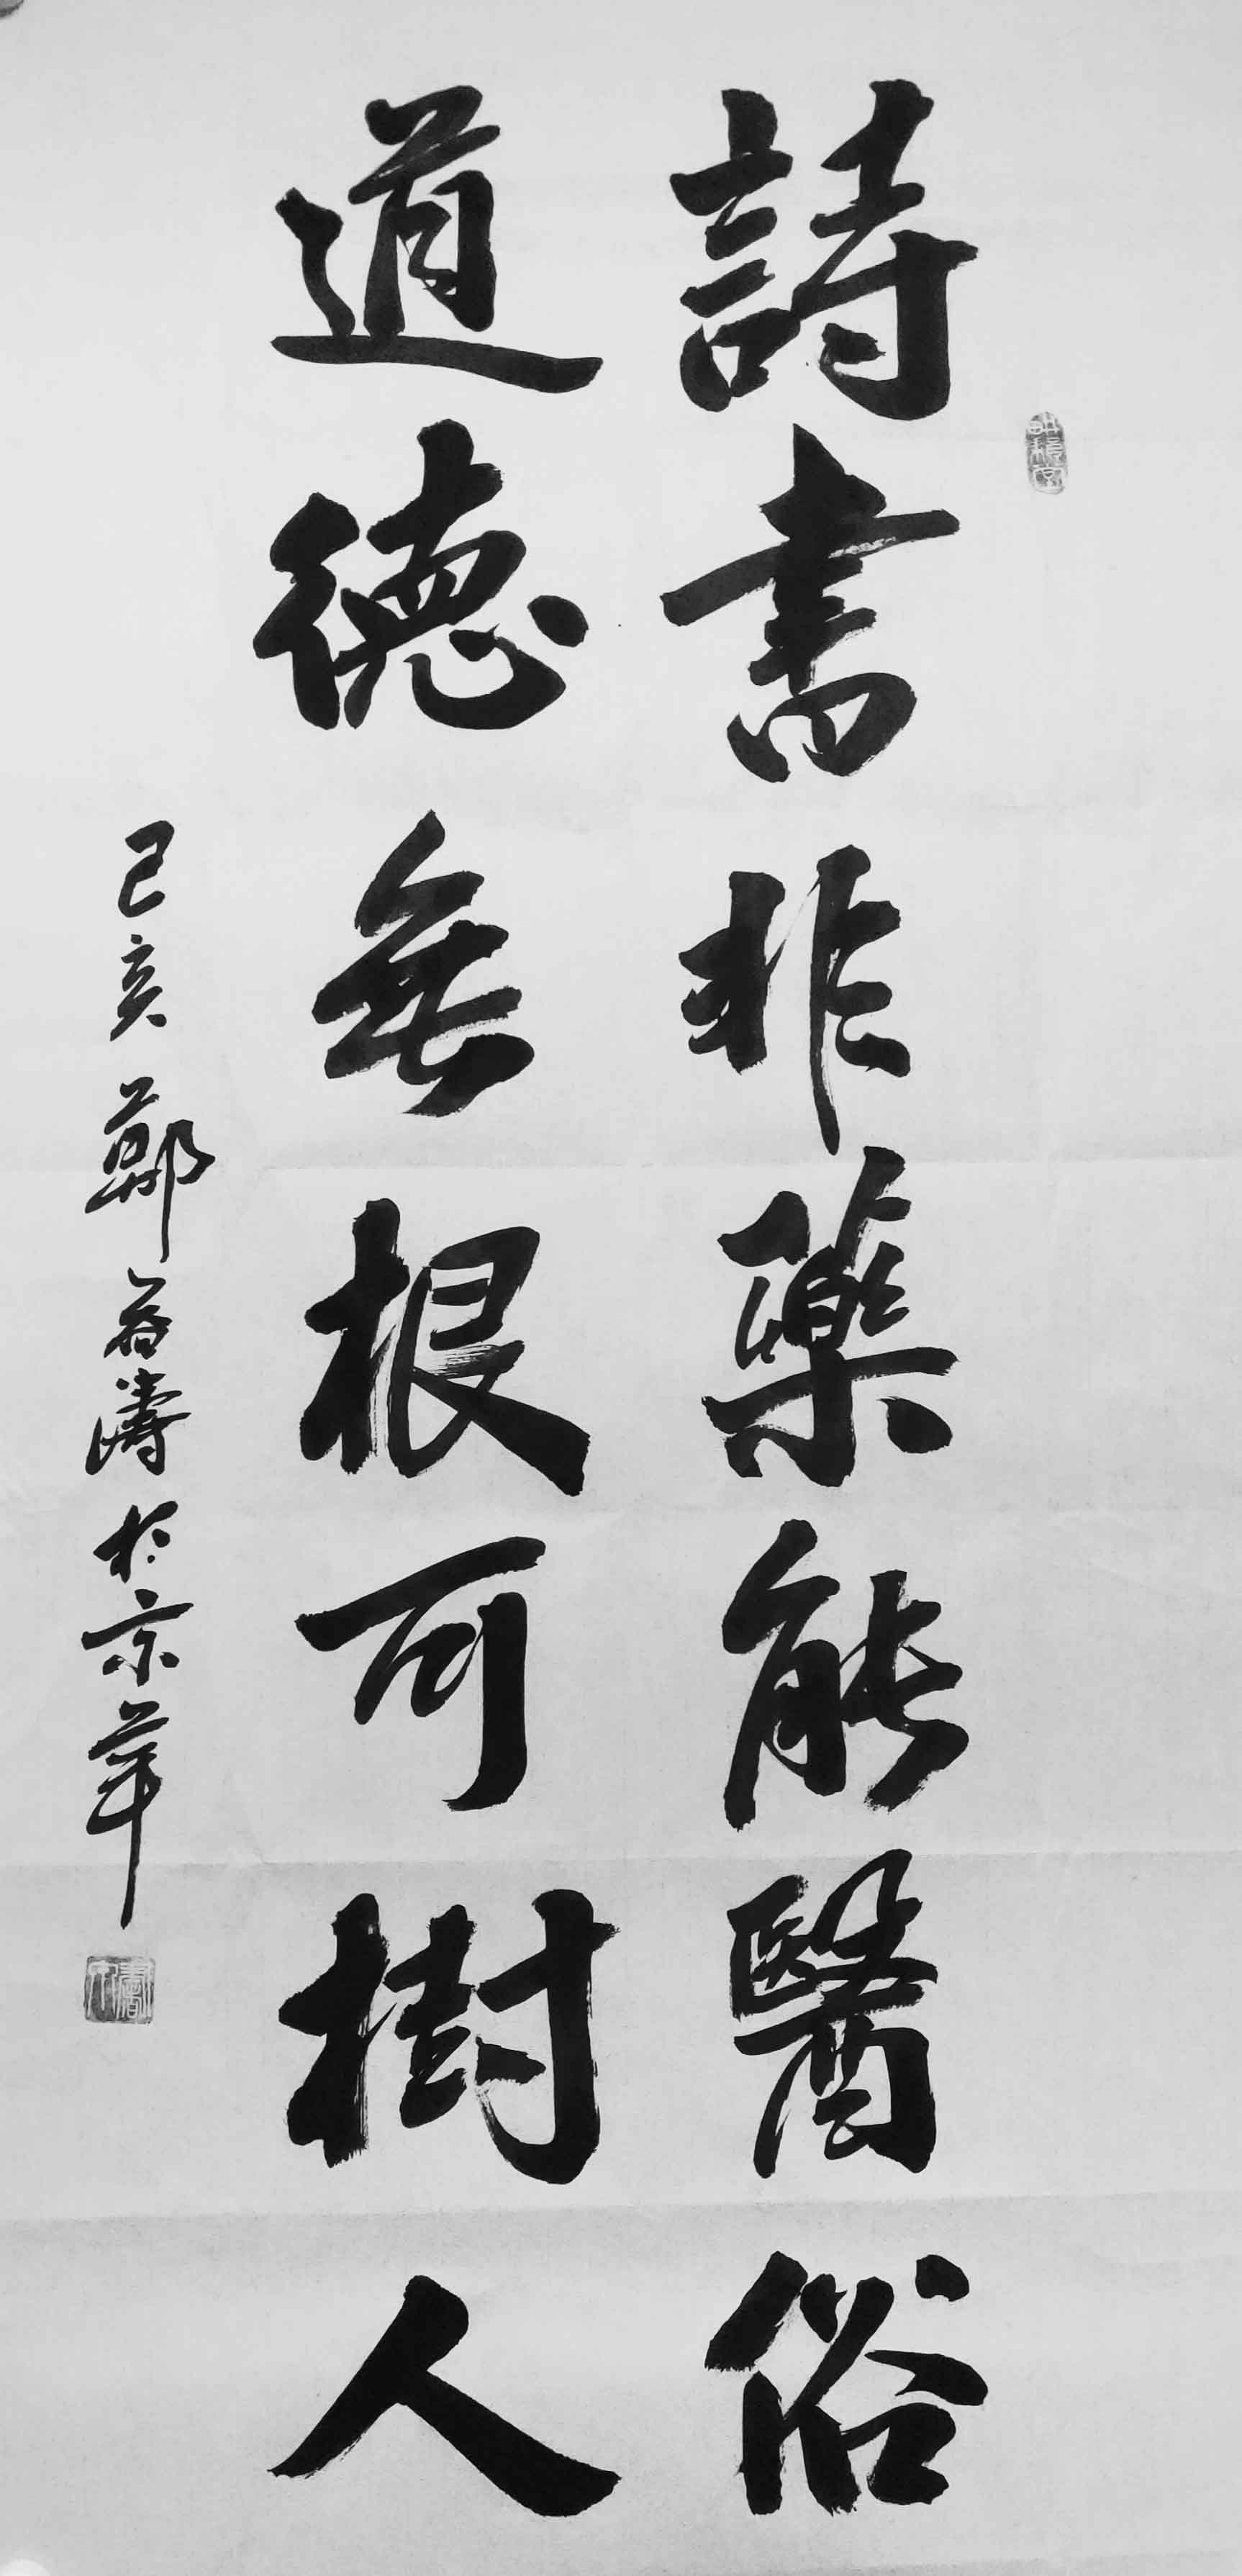 詩書非藥能醫俗
道德無根可樹人
己亥鄭益濤於京華